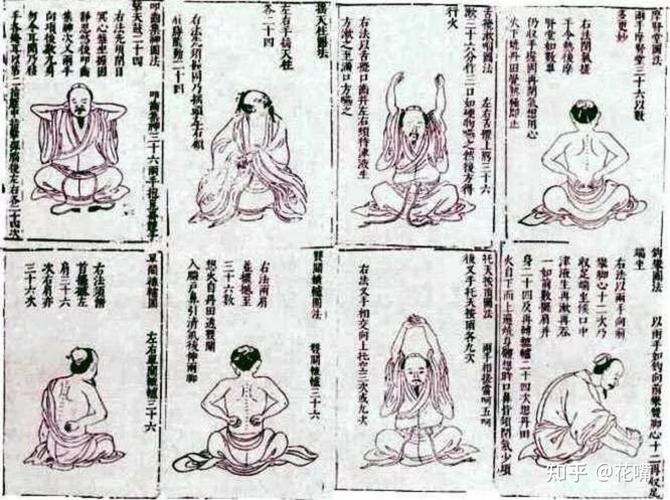 叩齒集神圖法 叩齒集神三十六兩手抱崑崙雙手
擊天鼓二十四
右法先須閉目
冥心盤坐握固
靜思然後叩齒
集神次叉兩手
向項後數九息
勿令耳聞乃移
手各掩耳以第二指壓中指擊彈腦後左右各二十四次
搖天柱圖法
左右手搖天柱
各二十四
右法先須握固乃搖頭左右顧
肩膊隨動二十四
舌攪漱咽圖法 左右舌攪上腭三十六
漱三十六分作三口如硬物嚥之然後方得
行火
右法以舌攪口齒并左右頰待津液生
方漱之至滿口方嚥之
摩腎堂圖法
兩手摩腎堂三十六以數
多更妙
右法閉氣搓
手令熱後摩
腎堂如數畢
仍收手握固再閉氣想用心
火下燒丹田覺熱極即止
單關轆轤圖法 左右單關轆轤三十六
右法須俯
首擺撼左
肩三十六
次右肩亦
三十六次
雙關轆轤圖法 雙關轆轤三十六
右法兩肩
並擺撼至
三十六數
想火自丹田透雙關
入腦戶鼻引清氣後伸兩脚
托天按頂圖法 兩手相搓當呵五呵
後叉手托天按頂各九次
右法叉手相交向上托空三次或九次
鈎攀圖法 以兩手如鈎向前攀雙脚心十二再收足
端坐
右法以兩手向前
攀脚心十二次乃
收足端坐候口中
津液生再漱再吞
一如前數擺肩并
身二十四及再轉轆轤二十四次想丹田
火自下而上遍燒身體想時口鼻皆須閉氣少頃
知乎 @花嘴